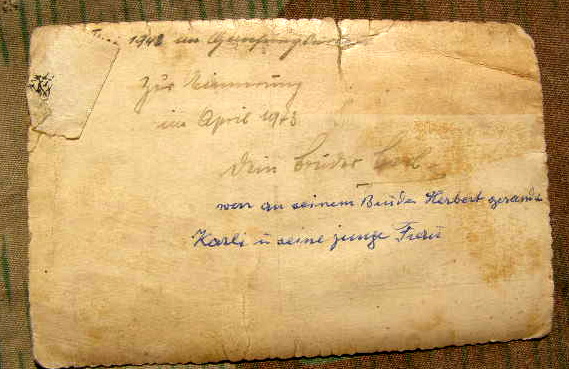 1943 im
Zur Erinnerung
im April 1943
Dein Bruder Karl
war an seinem Bruder Herbert gesandt
Karli u seine junge Frau